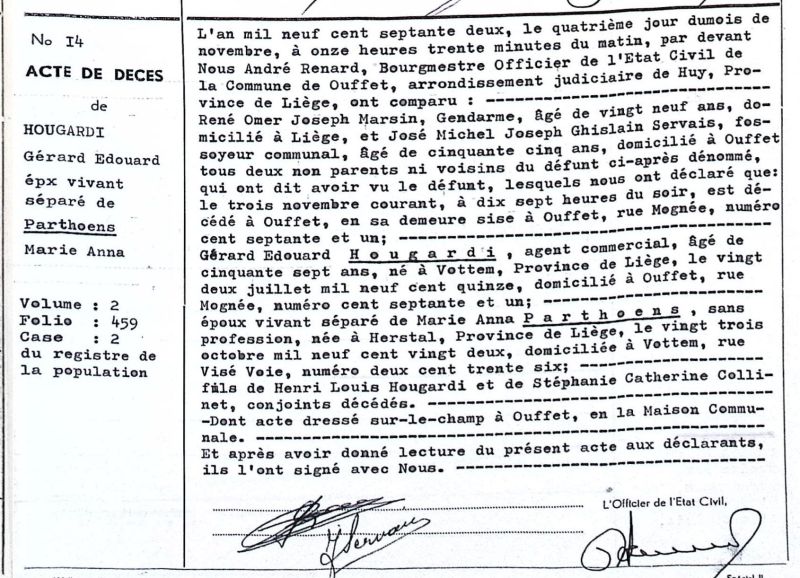 No I4
ACTE DE DECES
de
HOUGARDI
Gérard Edouard
épx vivant
séparé de
Parthoens
Marie Anna
Volume : 2
Folio : 459
Case : 2
du registre de
la population
L'an mil neuf cent septante deux, le quatrième jour dumois de
novembre, à onze heures trente minutes du matin, par devant
Nous André Renard, Bourgmestre Officier de l'Etat Civil de
la Commune de Ouffet, arrondissement judiciaire de Huy, Pro-
vince de Liège, ont comparu : ----------
René Omer Joseph Marsin, Gendarme, âgé de vingt neuf ans, do-
micilié à Liège, et José Michel Joseph Ghislain Servais, fos-
soyeur communal, âgé de cinquante cinq ans, domicilié à Ouffet
tous deux non parents ni voisins du défunt ci-après dénommé,
qui ont dit avoir vu le défunt, lesquels nous ont déclaré que:
le trois novembre courant, à dix sept heures du soir, est dé-
cédé à Ouffet, en sa demeure sise à Ouffet, rue Mognée, numéro
cent septante et un; ----------
Gérard Edouard H o u g a r d i , agent commercial, âgé de
cinquante sept ans, né à Vottem, Province de Liège, le vingt
deux juillet mil neuf cent quinze, domicilié à Ouffet, rue
Mognée, numéro cent septante et un; ----------
époux vivant séparé de Marie Anna P a r t h o e n s , sans
profession, née à Herstal, Province de Liège, le vingt trois
octobre mil neuf cent vingt deux, domiciliée à Vottem, rue
Visé Voie, numéro deux cent trente six; ----------
fils de Henri Louis Hougardi et de Stéphanie Catherine Colli-
net, conjoints décédés. ----------
-Dont acte dressé sur-le-champ à Ouffet, en la Maison Commu-
nale. ----------
Et après avoir donné lecture du présent acte aux déclarants,
ils l'ont signé avec Nous. ----------
L'Officier de l'Etat Civil,
J Servais